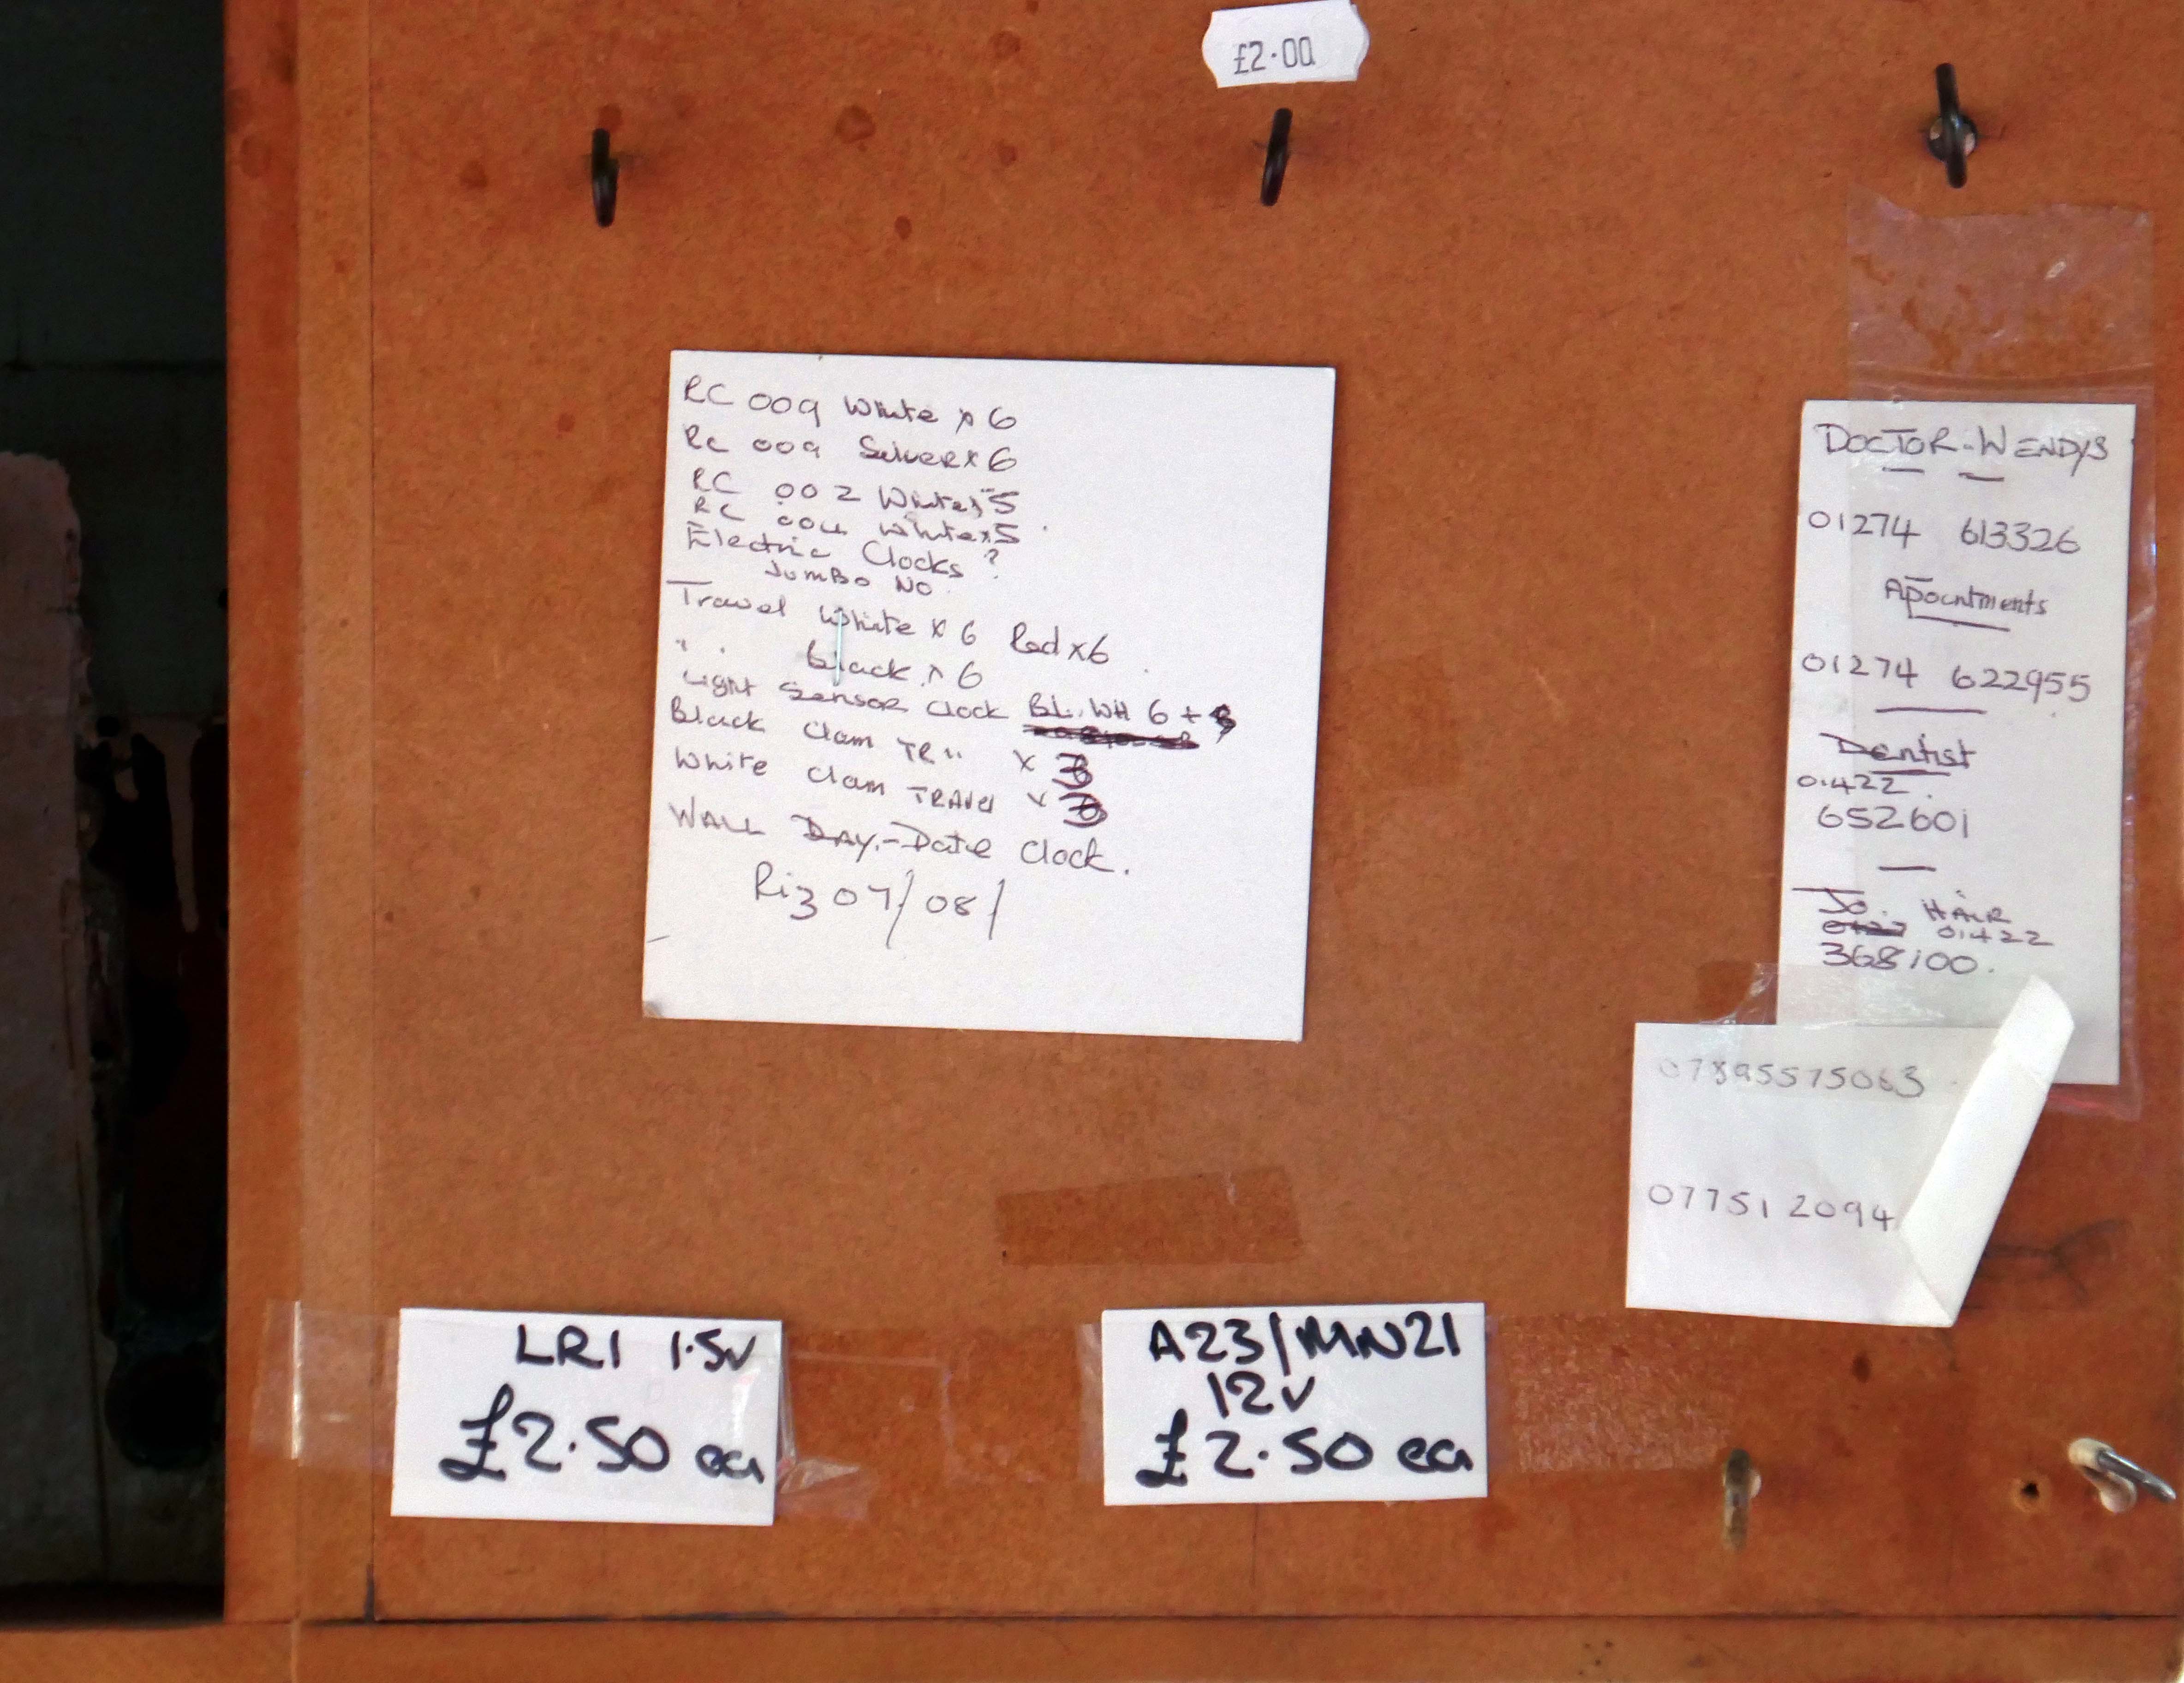 £2.00
RC 009 White x 6
RC 009 Silver x 6
RC 002 White x 5
RC 004 White x 5
Electric Clocks ?
Jumbo No
Travel White x 6 Red x 6
" " black x 6
Light Sensor clock BL. WH 6 +
Black Clam TR " x
White Clam TRAVel x
WALL DAY-Date Clock.
Riz 07/08/
DOCTOR-WENDYS
01274 613326
Apointments
01274 622955
Dentist
01422
652601
Jo. HAIR
01422
368100.
07895575063
077512094
LR1 1.5v
£2.50 ea
A23/MN21
12v
£2.50 ea